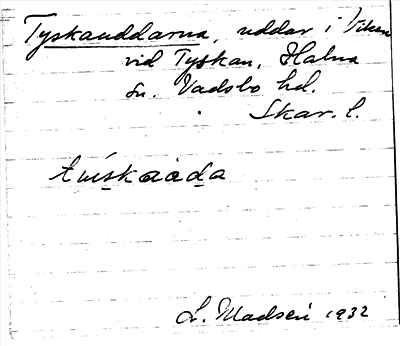 Tyskauddarna, uddar i Viken
vid Tyskan, Halna
sn. Vadsbo hd.
Skar. l.
tùiskaàda
L. Madsén 1932